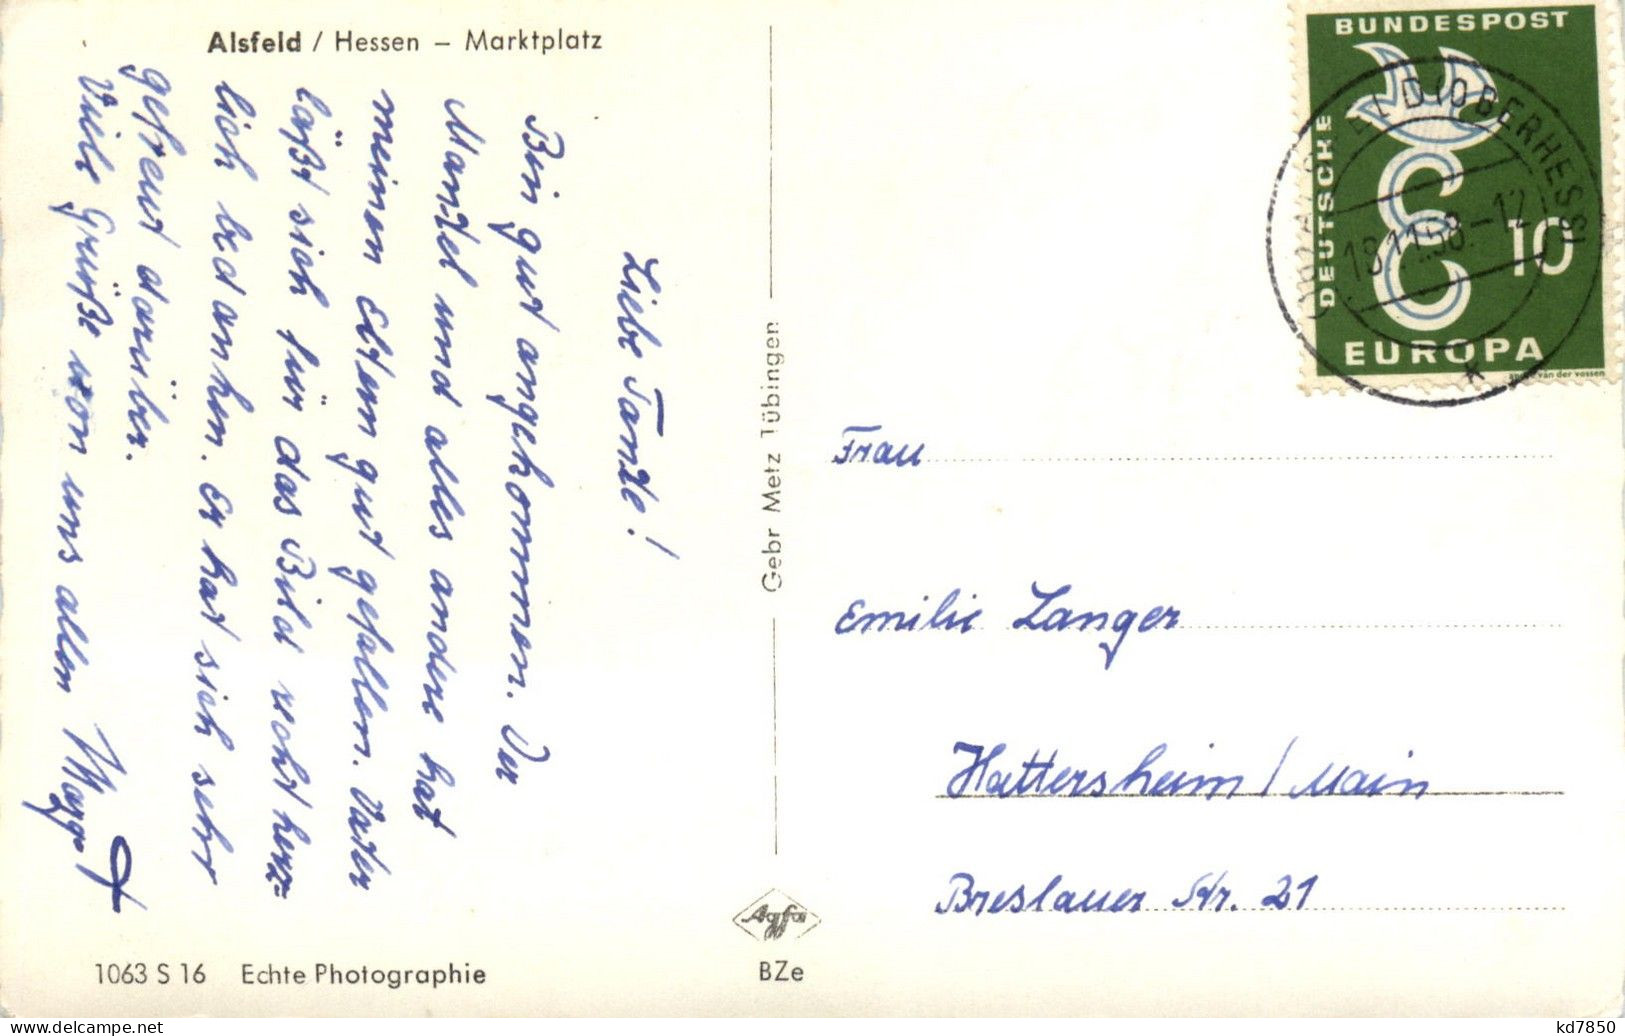 Alsfeld / Hessen – Marktplatz
Liebe Tante!
Bin gut angekommen. Der
Mantel und alles andere hat
meinen Eltern gut gefallen. Vater
läßt sich für das Bild recht herz=
lich bedanken. Er hat sich sehr
gefreut darüber.
Viele Grüße von uns allen
1063 S 16 Echte Photographie
Gebr Metz Tübingen
Agfa
BZe
BUNDESPOST
DEUTSCHE
10
EUROPA
van der vossen
(OBERHESS)
.11.58.-12
Frau
Emilie Langer
Hattersheim / Main
Breslauer Str. 21
kd7850